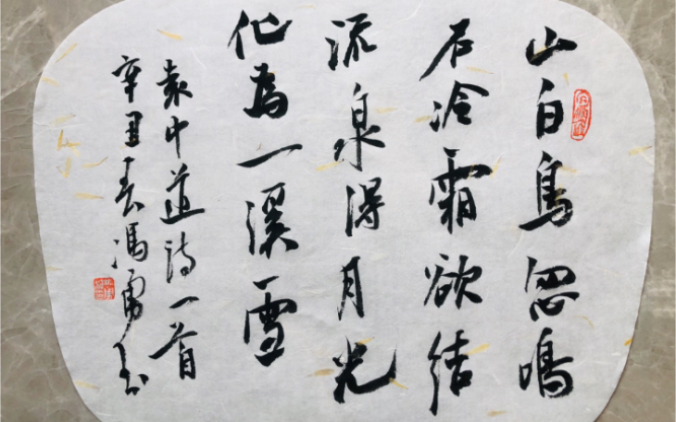 山白鸟忽鸣
石冷霜欲结
流泉得月光
化为一溪雪
袁中道诗一首
辛丑春冯勇书